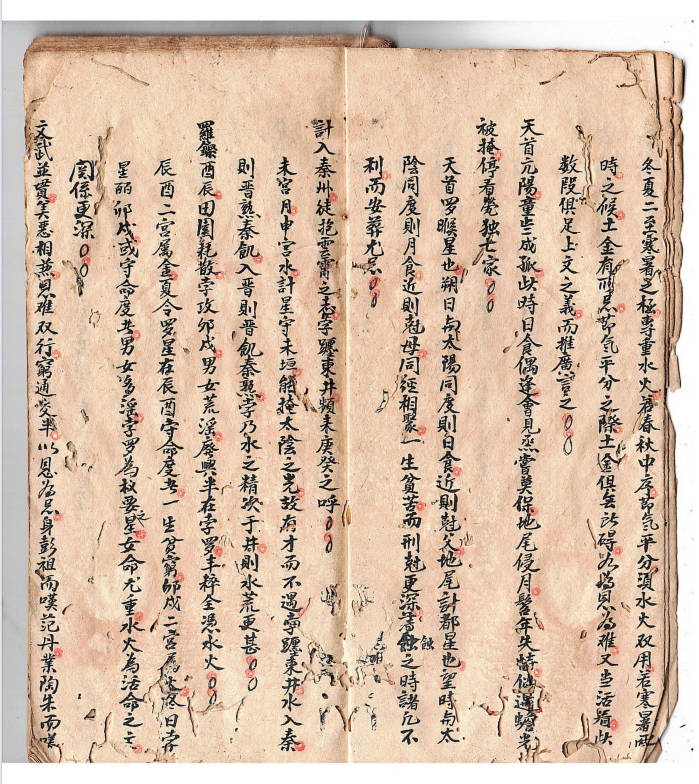 冬夏二至寒暑之極專重水火若春秋中序節氣平分須水火双用若寒暑
時之候土金有所忌節氣平分之際土金俱無所碍為恩為难又当活看此
数段俱足上文之義而推廣言之
天首元陽童些成孤此時日食偶逢會見烝嘗莫保地尾侵月髫年失恃倘遇蟾光
被掩俜看煢独亡家
天首罗睺星也朔日与太陽同度則日食近則尅父地尾計都星也望時与太
陰同度則月食近則尅母同經相聚一生貧苦而刑尅更深薄蝕之時諸凡不
利而安葬尤忌
計入秦州徒抱雲霄之志孛躔東井頻来庚癸之呼
未宮月申宮水計星守未垣能掩太陰之光故有才而不遇孛躔東井水入秦
則晋熟秦飢入晋則晋飢秦熟孛乃水之精次于井則水荒更甚
羅躔酉辰田園耗散孛攻卯戌男女荒淫廢興半在孛罗丰粹全憑水火
辰酉二宮属金夏令罗星在辰酉守命度者一生貧窮卯戌二宮属火冬日孛
星丽卯戌或守命度者男女多淫孛罗為权要之星女命尤重水火為活命之
関係更深
文武並貫美惡相兼恩难双行窮通变半以恩為忌身彭祖而嘆范丹業陶朱而嘆